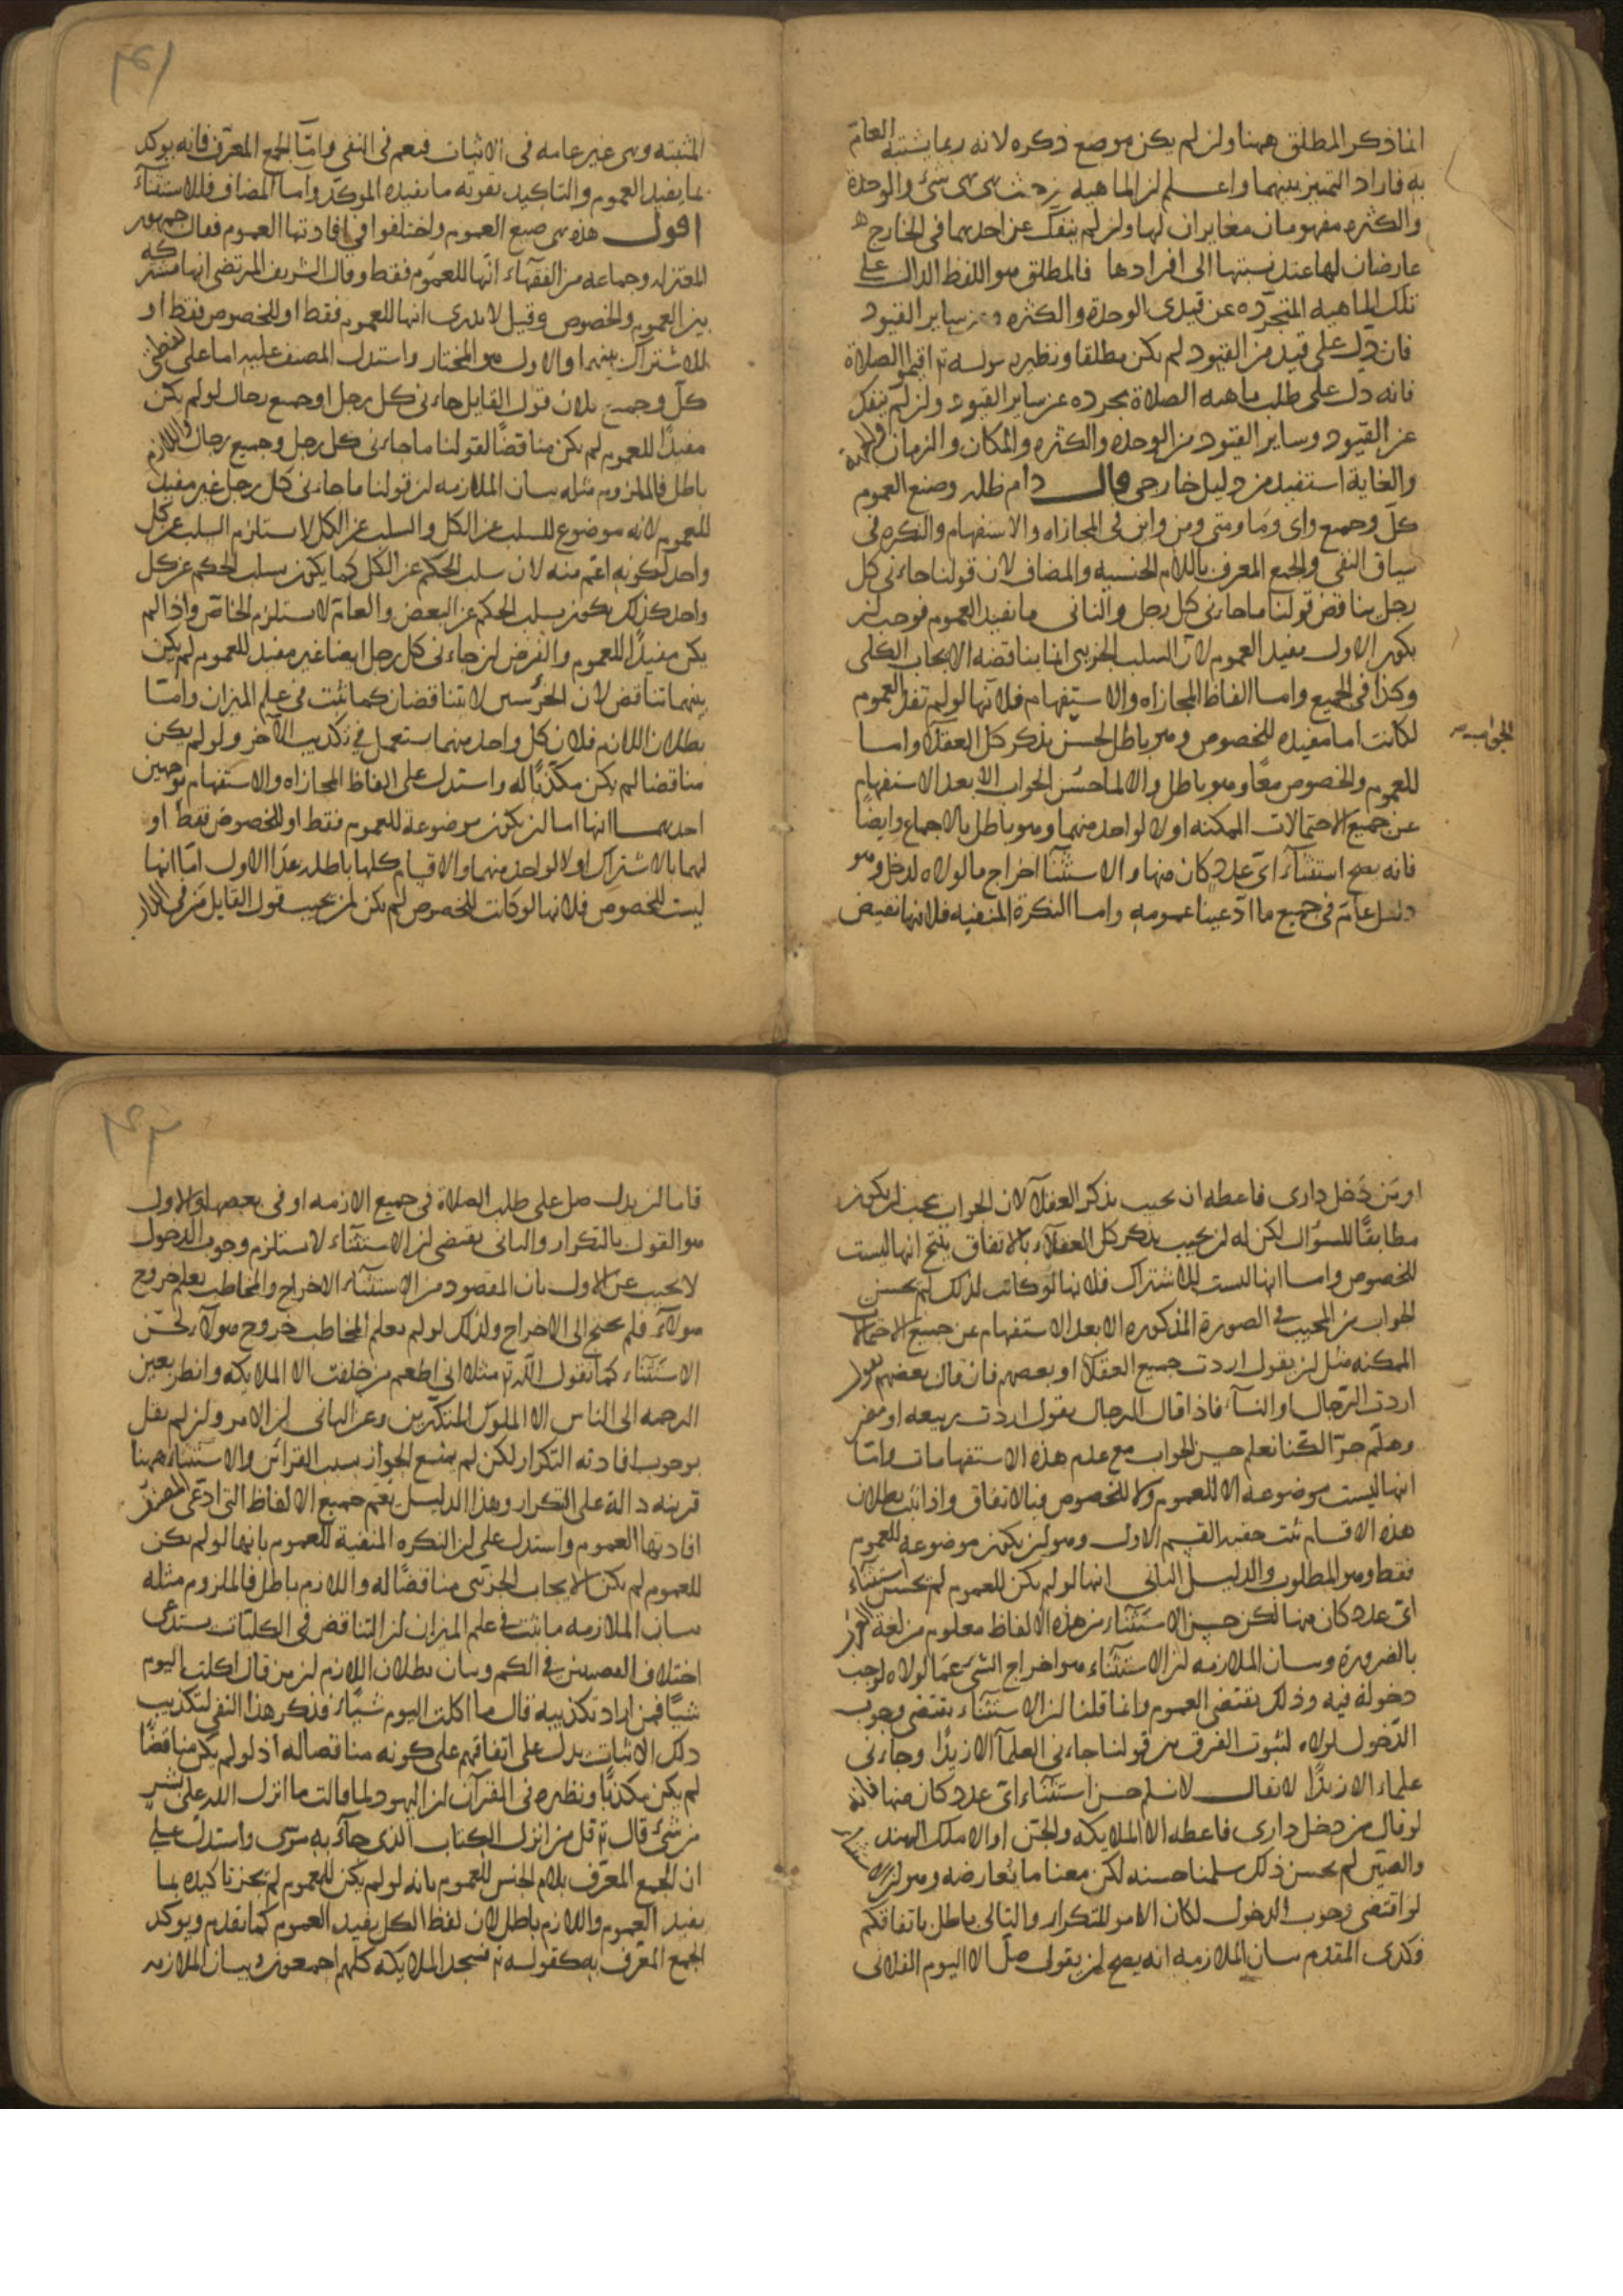 انما ذكر المطلق ههنا وان لم يكن موضع ذكره لانه ربما يشتبه العام
به فاراد التمييز بينهما واعلم ان الماهية من حيث هي هي شئ والوحدة
والكثره مفهومان مغايران لها وان لم ينفك عن احدهما في الخارج
عارضان لها عند نسبتها الى افرادها فالمطلق هو اللفظ الدال على
تلك الماهيه المتجرده عن قيدى الوحدة والكثره و من ساير القيود
فان دل على قيد من القيود لم يكن مطلقا ونظيره قوله تع اقيموا الصلاة
فانه دل على طلب ماهية الصلاة مجرده عن ساير القيود وان لم ينفك
عن القيود وساير القيود من الوحده والكثره والمكان والزمان
والغاية استفيد من دليل خارجى قال دام ظله وصيغ العموم
كل وجميع واى وما ومتى ومن واين فى المجازاه والاستفهام والنكره فى
سياق النفى والجمع المعرف باللام الجنسيه والمضاف لان قولنا جاءنى كل
رجل يناقض قولنا ما جاءنى كل رجل والثانى ما يفيد العموم فوجب ان
يكون الاول مفيد العموم لان السلب الجزيى انما يناقضه الايجاب الكلى
وكذا فى الجميع واما الفاظ المجازاه والاستفهام فلانها لو لم تفد العموم
لكانت اما مفيده للخصوص وهو باطل لحسن بذكر كل العقلا واما
للعموم والخصوص معا وهو باطل والا لما حسن الجواب الا بعد الاستفهام
عن جميع الاحتمالات الممكنه او لا لواحد منهما وهو باطل بالاجماع وايضا
فانه يصح استثناء اى عدد كان منها والاستثنا اخراج ما لولاه لدخل وهو
دليل عام فى جميع ما ادعينا عمومه واما النكرة المنفيه فلانها نقيض
المثبته وهى غير عامه فى الاثبات فيعم فى النفى واما الجمع المعرف فانه يوكد
بما يفيد العموم والتاكيد تقويه ما يفيده الموكد واما المضاف فللاستثناء
اقول هذه هى صيغ العموم واختلفوا فى افادتها العموم فقال جمهور
المعتزله وجماعه من الفقهاء انها للعموم فقط وقال الشريف المرتضى انها مشتركه
بين العموم والخصوص وقيل لا ندرى انها للعموم فقط او للخصوص فقط او
للاشتراك بينهما والاول هو المختار واستدل المصنف عليه اما على لفظتى
كل وجميع بلان قول القايل جاءنى كل رجل او جميع رجال لو لم يكن
مفيدا للعموم لم يكن مناقضا لقولنا ما جاءنى كل رجل وجميع رجال واللازم
باطل فالملزوم مثله بيان الملازمه ان قولنا ما جاءنى كل رجل غير مفيد
للعموم لانه موضوع للسلب عن الكل والسلب عن الكل لا يستلزم السلب عن كل
واحد لكونه اعم منه لان سلب الحكم عن الكل كما يكون بسلب الحكم عن كل
واحد كذلك يكون بسلب الحكم عن البعض والعام لا يستلزم الخاص واذا لم
يكن مفيدا للعموم والفرض ان جاءنى كل رجل ايضا غير مفيد للعموم لم يكن
بينهما تناقض لان الجزئيين لا يتناقضان كما ثبت فى علم الميزان واما
بطلان اللازم فلان كل واحد منهما يستعمل فى تكذيب الآخر ولو لم يكن
مناقضا لم يكن مكذبا له واستدل على الفاظ المجازاه والاستفهام بوجهين
احدهما انها اما ان يكون موضوعة للعموم فقط او للخصوص فقط او
لهما بالاشتراك او لا لواحد منهما والاقسام كلها باطله عدا الاول اما انها
ليست للخصوص فلانها لو كانت للخصوص لم يكن لمن يجيب قول القايل من فى الدار
او من دخل دارى فاعطه ان يجيب بذكر العقلا لان الجواب يجب ان يكون
مطابقا للسؤال لكن له ان يجيب بذكر كل العقلاء بالاتفاق ينتج انها ليست
للخصوص واما انها ليست للاشتراك فلانها لو كانت لذلك لم يحسن
الجواب من المجيب فى الصورة المذكوره الا بعد الاستفهام عن جميع الاحتمالات
الممكنه مثل ان يقول اردت جميع العقلا او بعضهم فان قال بعضهم يقول
اردت الرجال او النسآء فاذا قال الرجال يقول اردت ربيعه او مضر
وهلم جرا لكنا نعلم حسن الجواب مع عدم هذه الاستفهامات واما
انها ليست موضوعه الا للعموم ولا للخصوص فبالاتفاق واذا ثبت بطلان
هذه الاقسام ثبت حقيه القسم الاول وهو ان يكون موضوعه للعموم
فقط وهو المطلوب والدليل الثانى انها لو لم يكن للعموم لم يحسن استثناء
اى عدد كان منها لكن حسن الاستثناء من هذه الالفاظ معلوم من لغة العرب
بالضرورة وبيان الملازمه ان الاستثناء هو اخراج الشئ عما لولاه لوجب
دخوله فيه وذلك يقتضى العموم وانما قلنا ان الاستثناء يقتضى وجوب
الدخول لولاه لثبوت الفرق بين قولنا جاءنى العلمآ الا زيدا وجاءنى
علماء الا زيدا لا يقال لا نسلم حسن استثناء اى عدد كان منها فانه
لو قال من دخل دارى فاعطه الا الملايكه والجن او الا ملك الهند
والصين لم يحسن ذلك سلمنا حسنه لكن معنا ما يعارضه وهو ان الاستثناء
لو اقتضى وجوب الدخول لكان الامر للتكرار والتالى باطل باتفاقكم
فكذى المقدم بيان الملازمه انه يصح ان يقول صل الا اليوم الفلانى
فاما ان يدل صل على طلب الصلاة فى جميع الازمه او فى بعضها والاول
هو القول بالتكرار والثانى يقتضى ان الاستثناء لا يستلزم وجوب الدخول
لا نجيب عن الاول بان المقصود من الاستثناء الاخراج والمخاطب يعلم خروج
هولآء فلم يحتج الى الاخراج ولذلك لو لم يعلم المخاطب خروج هولآء لحسن
الاستثناء كما نقول الله تع مثلا انى اطعم من خلقت الا الملايكه وانظر بعين
الرحمه الى الناس الا الملوك المتكبرين وعن الثانى ان الامر وان لم نقل
بوجوب افادته التكرار لكن لم يمنع الجواز بسبب القرائن والاستثناء ههنا
قرينه دالة على التكرار وهذا الدليل يعم جميع الالفاظ التى ادعى المصنف
افادتها العموم واستدل على ان النكره المنفية للعموم بانها لو لم يكن
للعموم لم يكن الايجاب الجزئى مناقضا له واللازم باطل فالملزوم مثله
بيان الملازمه ما ثبت فى علم الميزان ان التناقض فى الكليات يستدعى
اختلاف القضيتين فى الكم وبيان بطلان اللازم ان من قال اكلت اليوم
شيئا فمن اراد تكذيبه قال ما اكلت اليوم شيئا فذكر هذا النفى لتكذيب
ذلك الاثبات يدل على اتفاقهم على كونه مناقضا له اذ لو لم يكن مناقضا
لم يكن مكذبا ونظيره فى القرآن ان اليهود لما قالت ما انزل الله على بشر
من شئ قال تع قل من انزل الكتاب الذى جآء به موسى واستدل على
ان الجمع المعرف بلام الجنس للعموم بانه لو لم يكن للعموم لم يجز تاكيده بما
يفيد العموم واللازم باطل لان لفظ الكل يفيد العموم كما تقدم ويوكد
الجمع المعرف به كقوله تع فسجد الملايكه كلهم اجمعون وبيان الملازمه